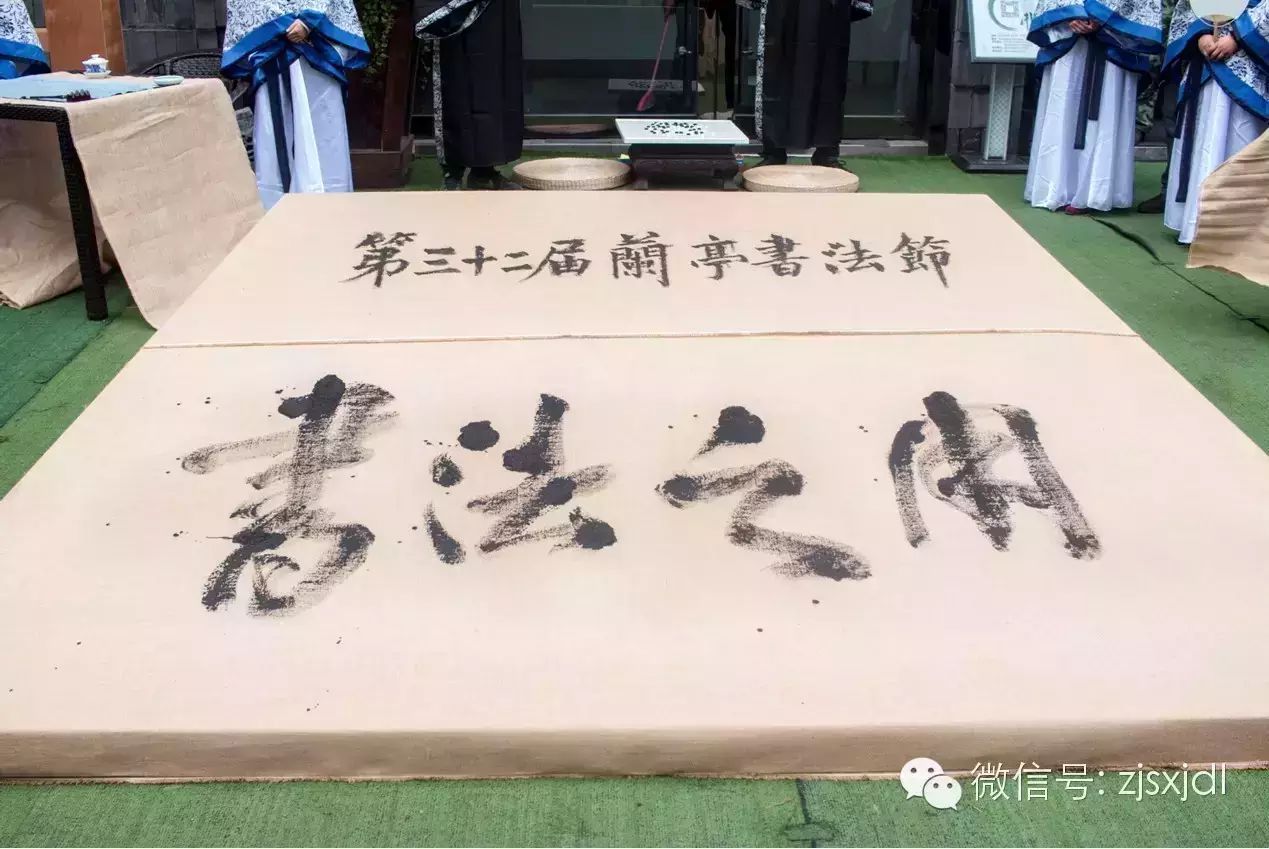 第三十二届蘭亭書法節
書法之用
微信号: zjsxjdl